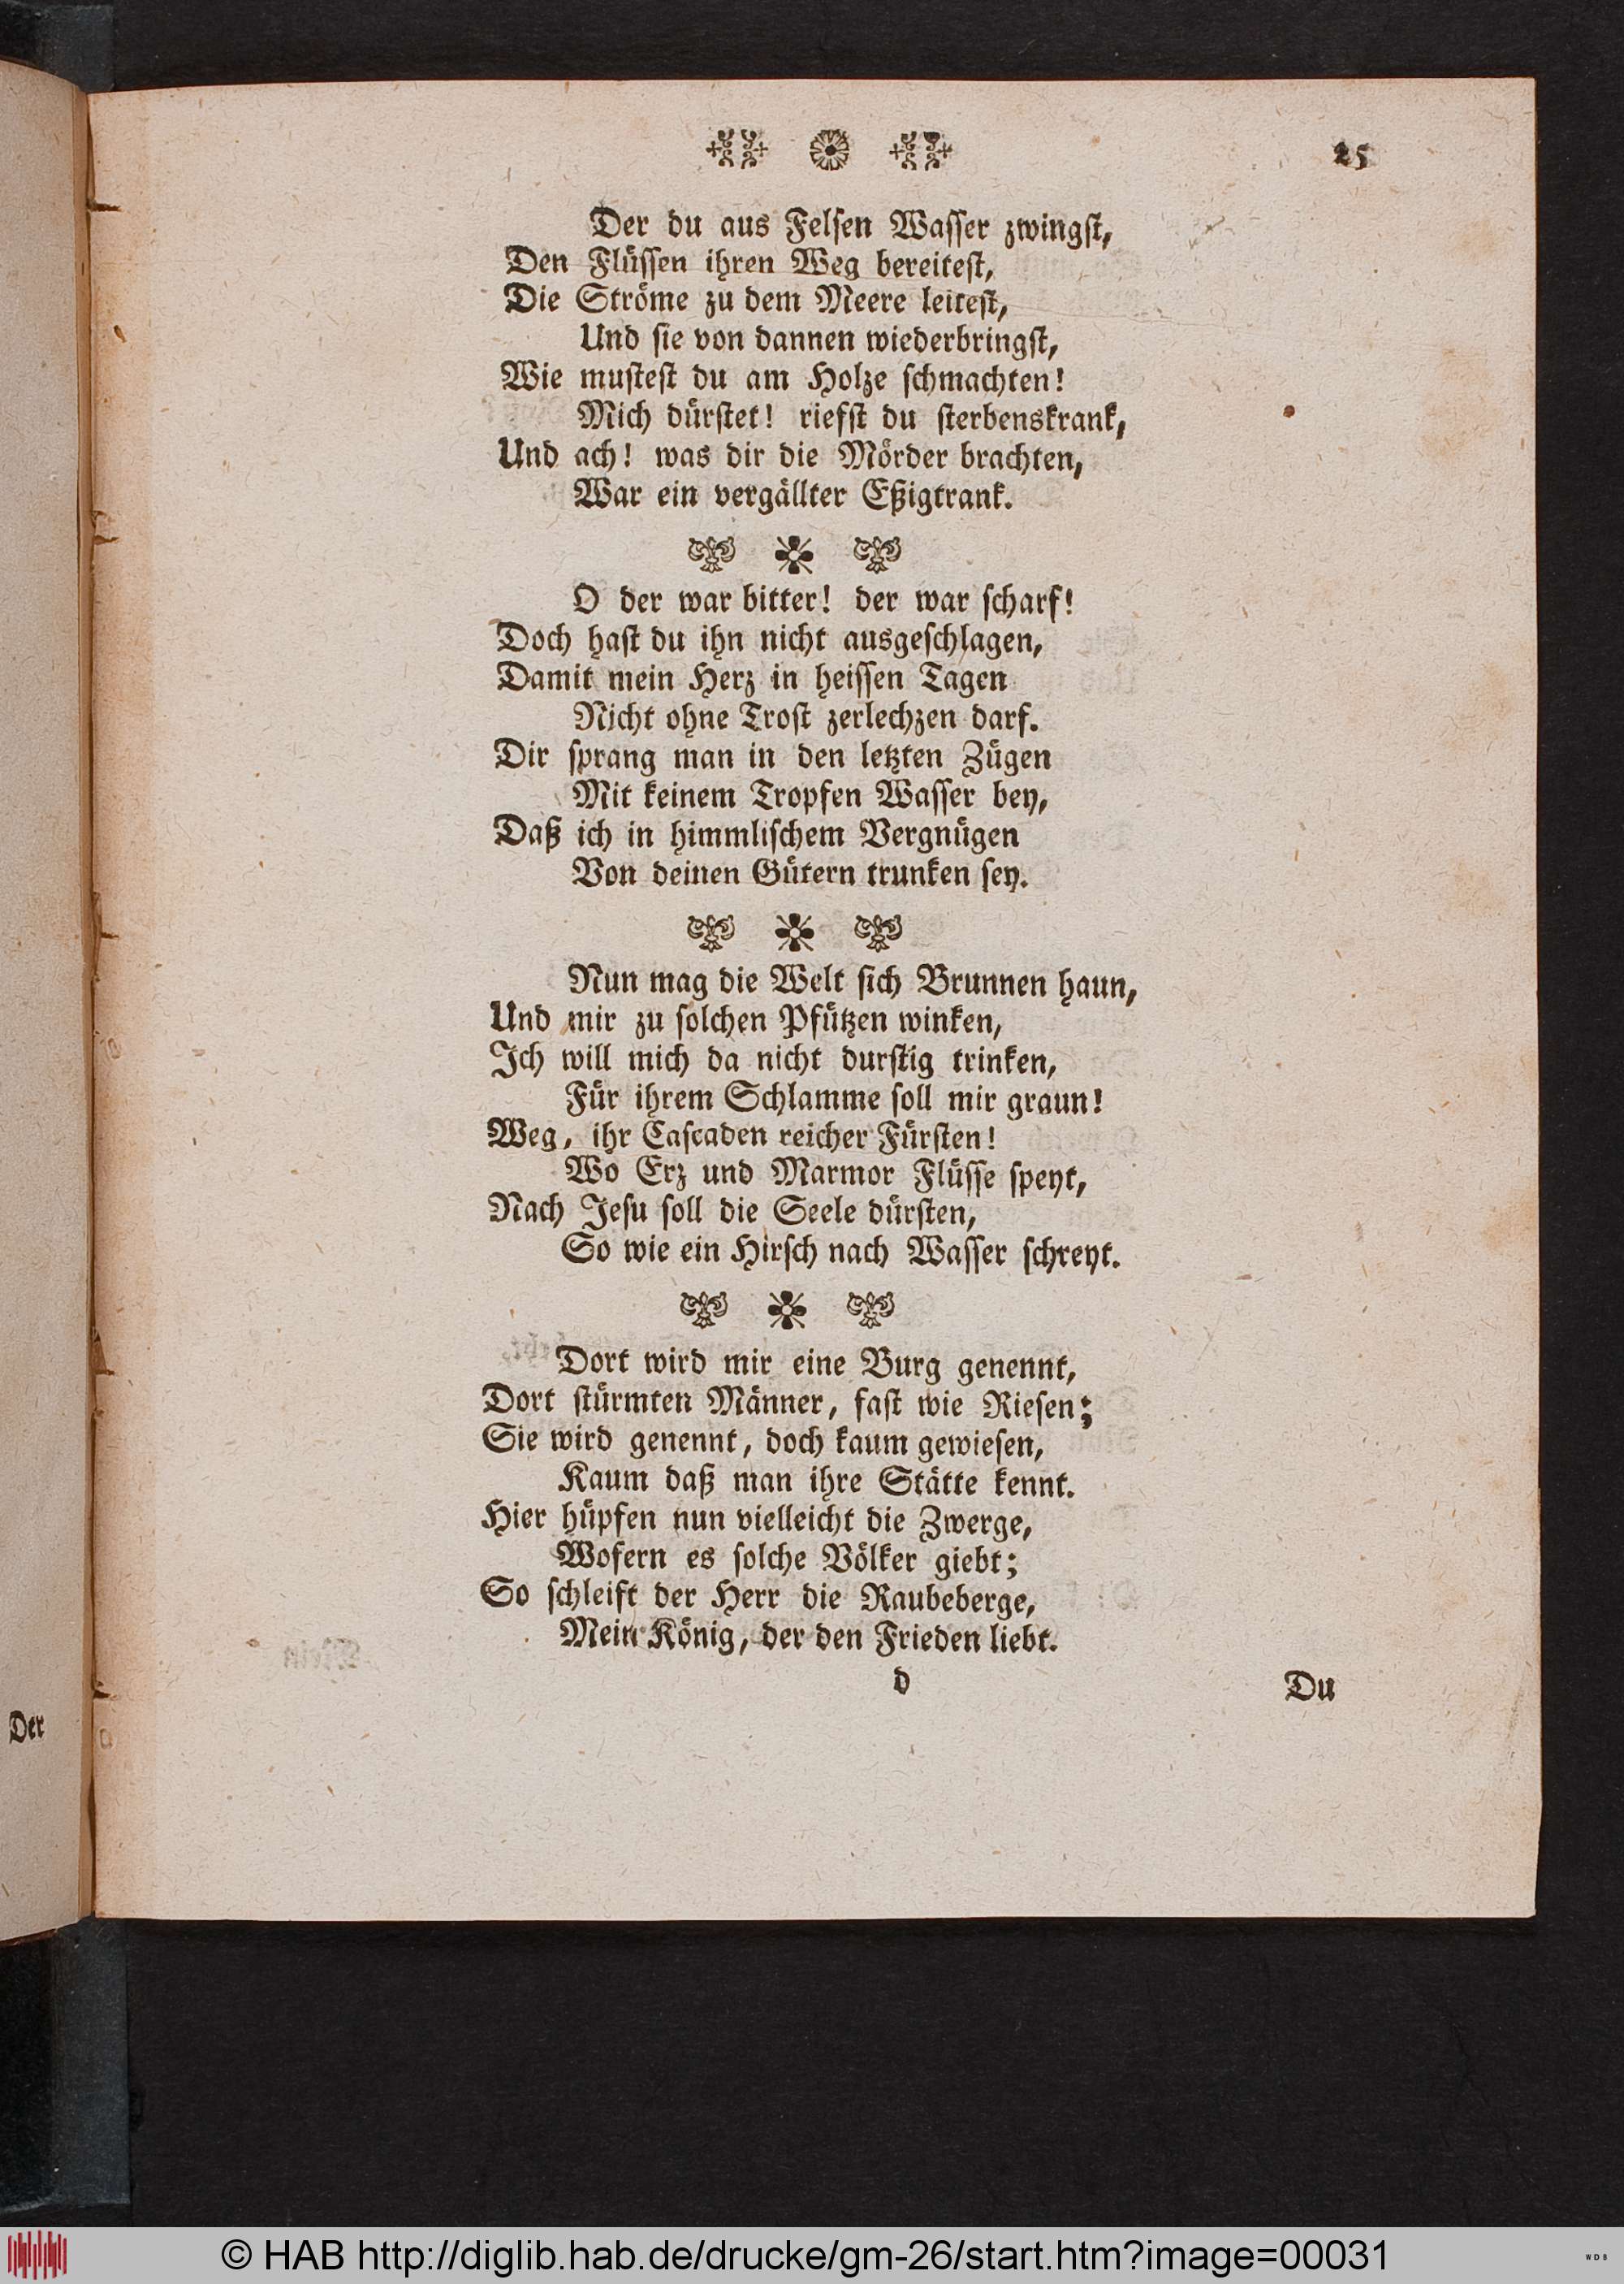 25
Der du aus Felsen Wasser zwingst,
Den Flüssen ihren Weg bereitest,
Die Ströme zu dem Meere leitest,
Und sie von dannen wiederbringst,
Wie mustest du am Holze schmachten!
Mich dürstet! riefst du sterbenskrank,
Und ach! was dir die Mörder brachten,
War ein vergällter Eßigtrank.
O der war bitter! der war scharf!
Doch hast du ihn nicht ausgeschlagen,
Damit mein Herz in heissen Tagen
Nicht ohne Trost zerlechzen darf.
Dir sprang man in den letzten Zügen
Mit keinem Tropfen Wasser bey,
Daß ich in himmlischem Vergnügen
Von deinen Gütern trunken sey.
Nun mag die Welt sich Brunnen haun,
Und mir zu solchen Pfützen winken,
Ich will mich da nicht durstig trinken,
Für ihrem Schlamme soll mir graun!
Weg, ihr Cascaden reicher Fürsten!
Wo Erz und Marmor Flüsse speyt,
Nach Jesu soll die Seele dürsten,
So wie ein Hirsch nach Wasser schreyt.
Dort wird mir eine Burg genennt,
Dort stürmten Männer, fast wie Riesen;
Sie wird genennt, doch kaum gewiesen,
Kaum daß man ihre Stätte kennt.
Hier hüpfen nun vielleicht die Zwerge,
Wofern es solche Völker giebt;
So schleift der Herr die Raubeberge,
Mein König, der den Frieden liebt.
d Du
Der
© HAB http://diglib.hab.de/drucke/gm-26/start.htm?image=00031
WDB